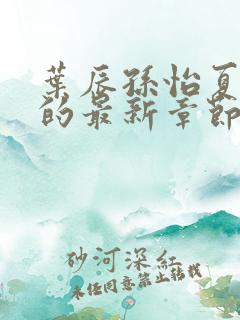 葉辰孫怡夏
的最新章節
砂河深紅
未经同意禁止转载